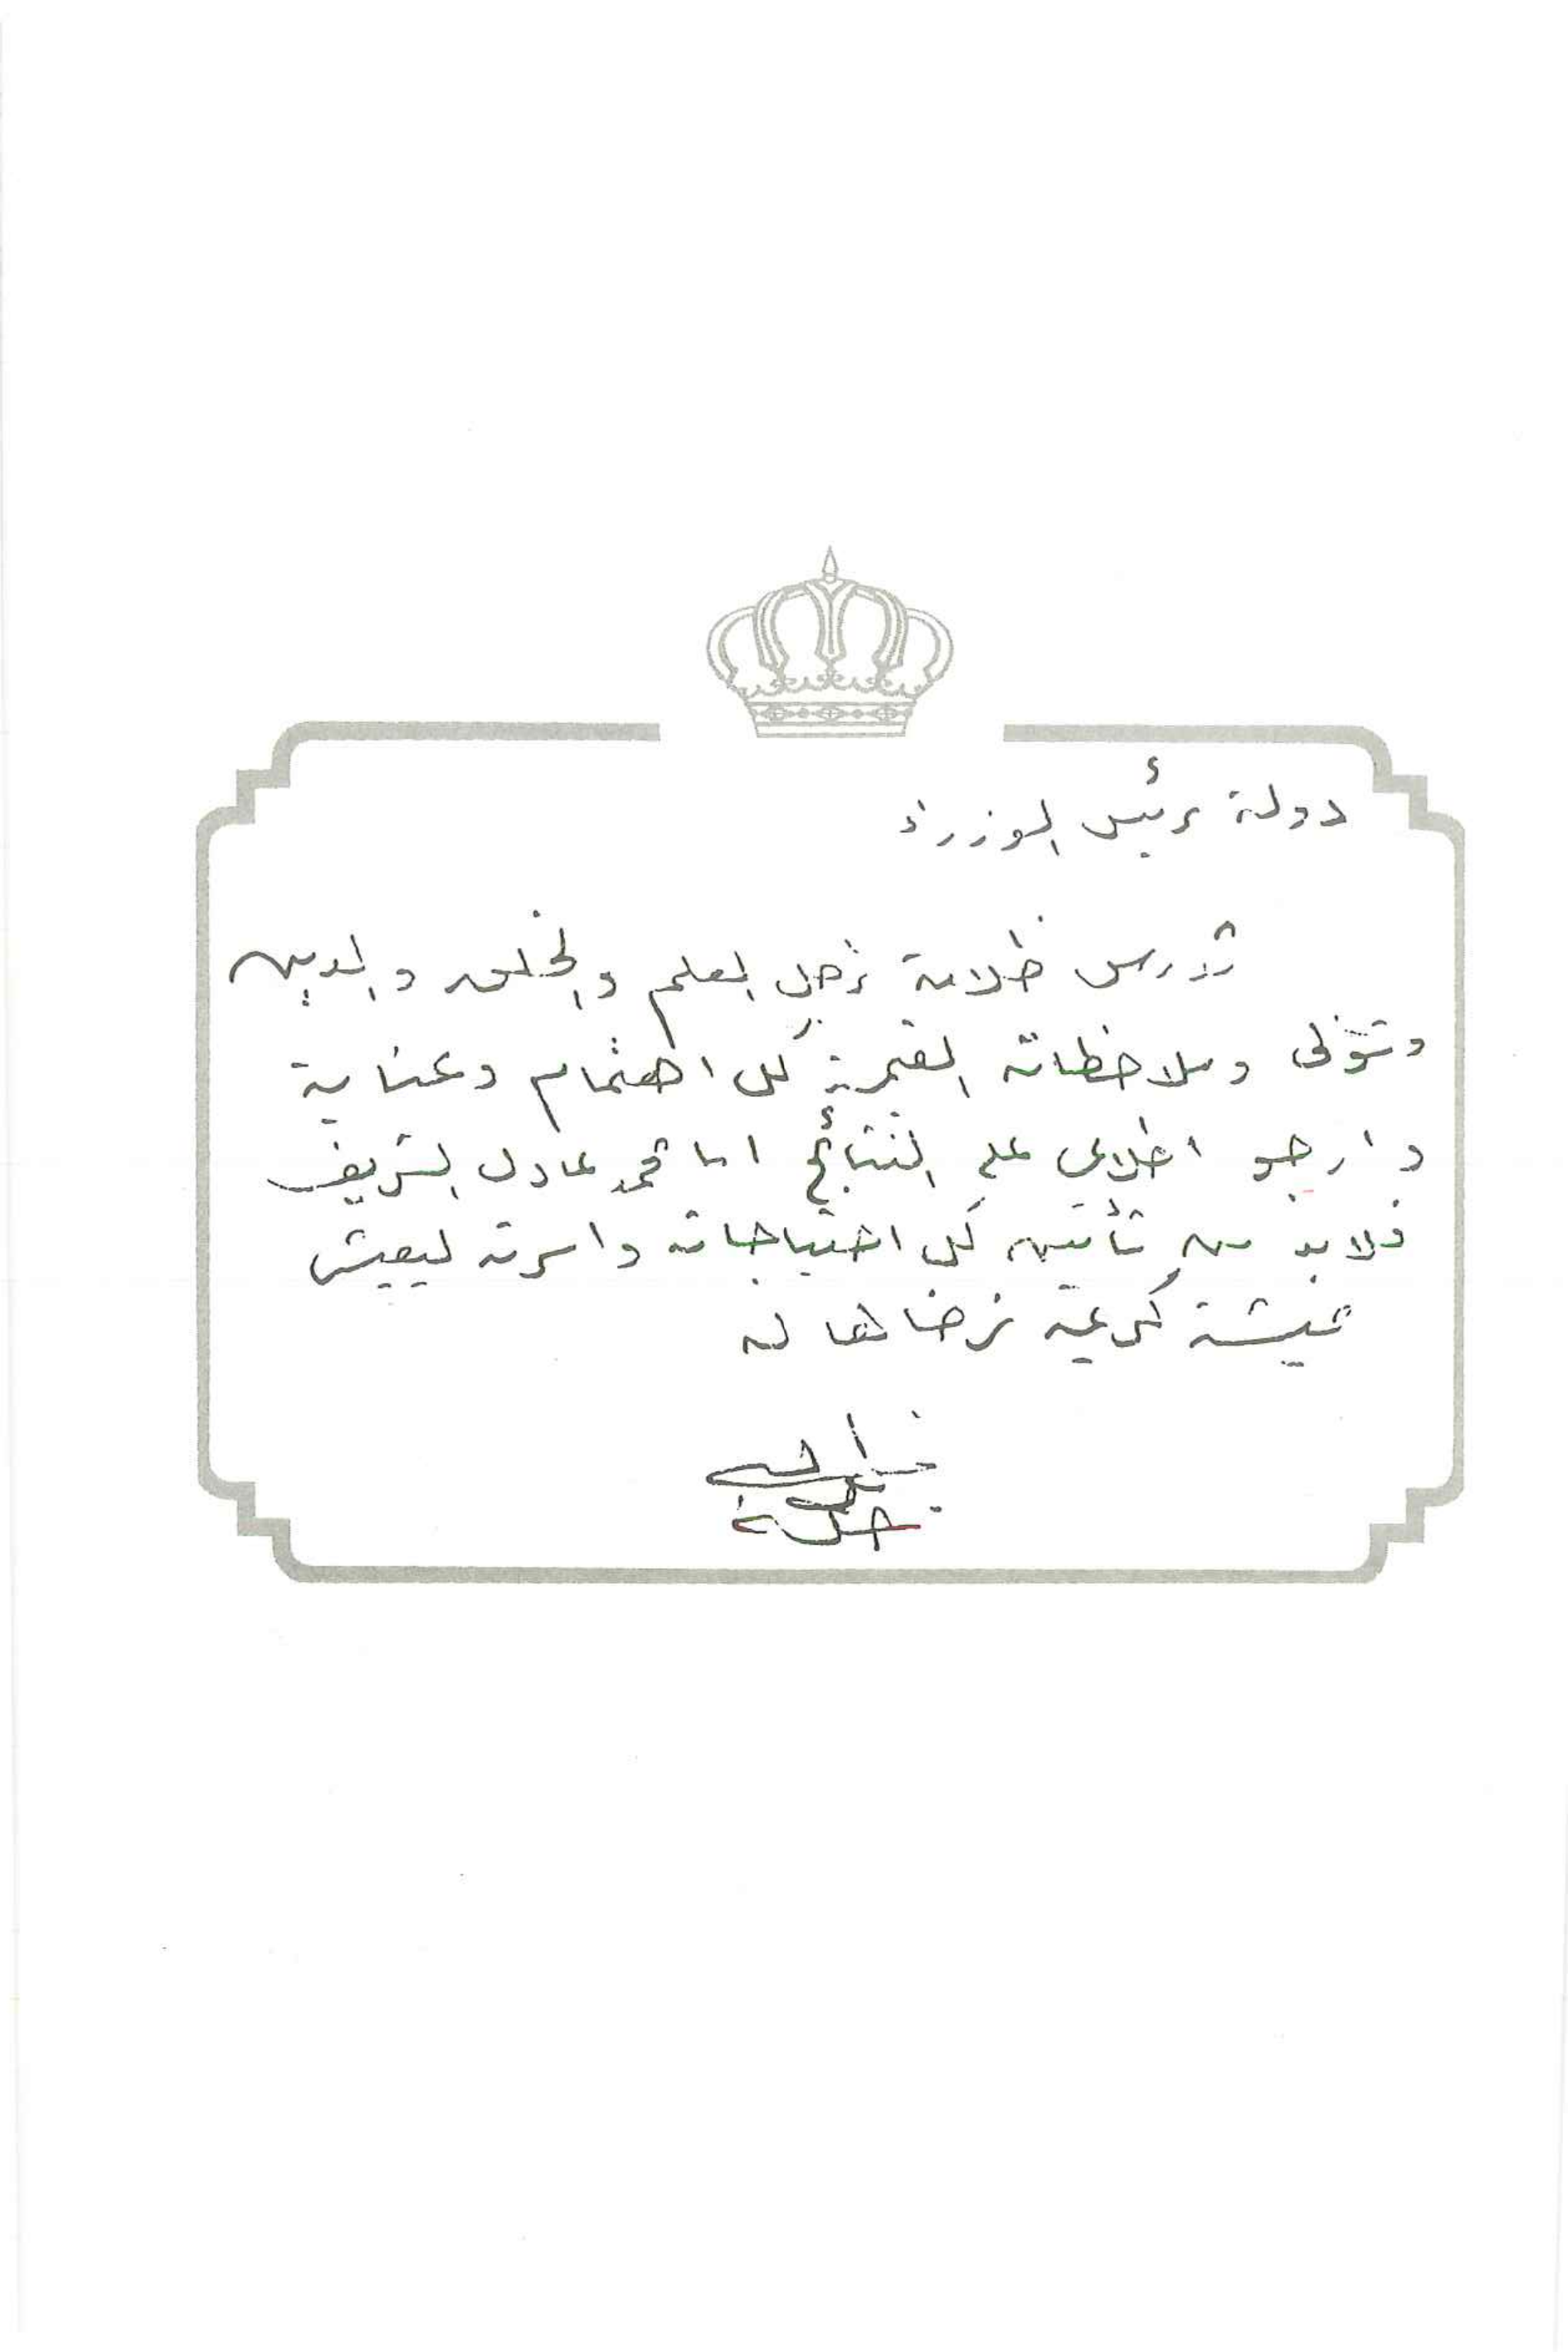 دولة رئيس الوزراء
تدرس ظلامة رجل العلم والخلق والدين
وتولى وملاحظاته القيمة كل اهتمام وعناية
وارجو اطلاعي على النتائج اما محمد عادل الشريف
فلابد من تأمين كل احتياجاته واسرته ليعيش
عيشة كريمة نرضاها له